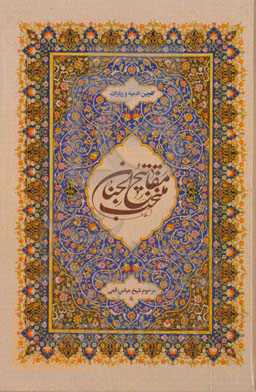 گلچین ادعیه و زیارات
منتخب مفاتیح الجنان
مرحوم شیخ عباس قمی